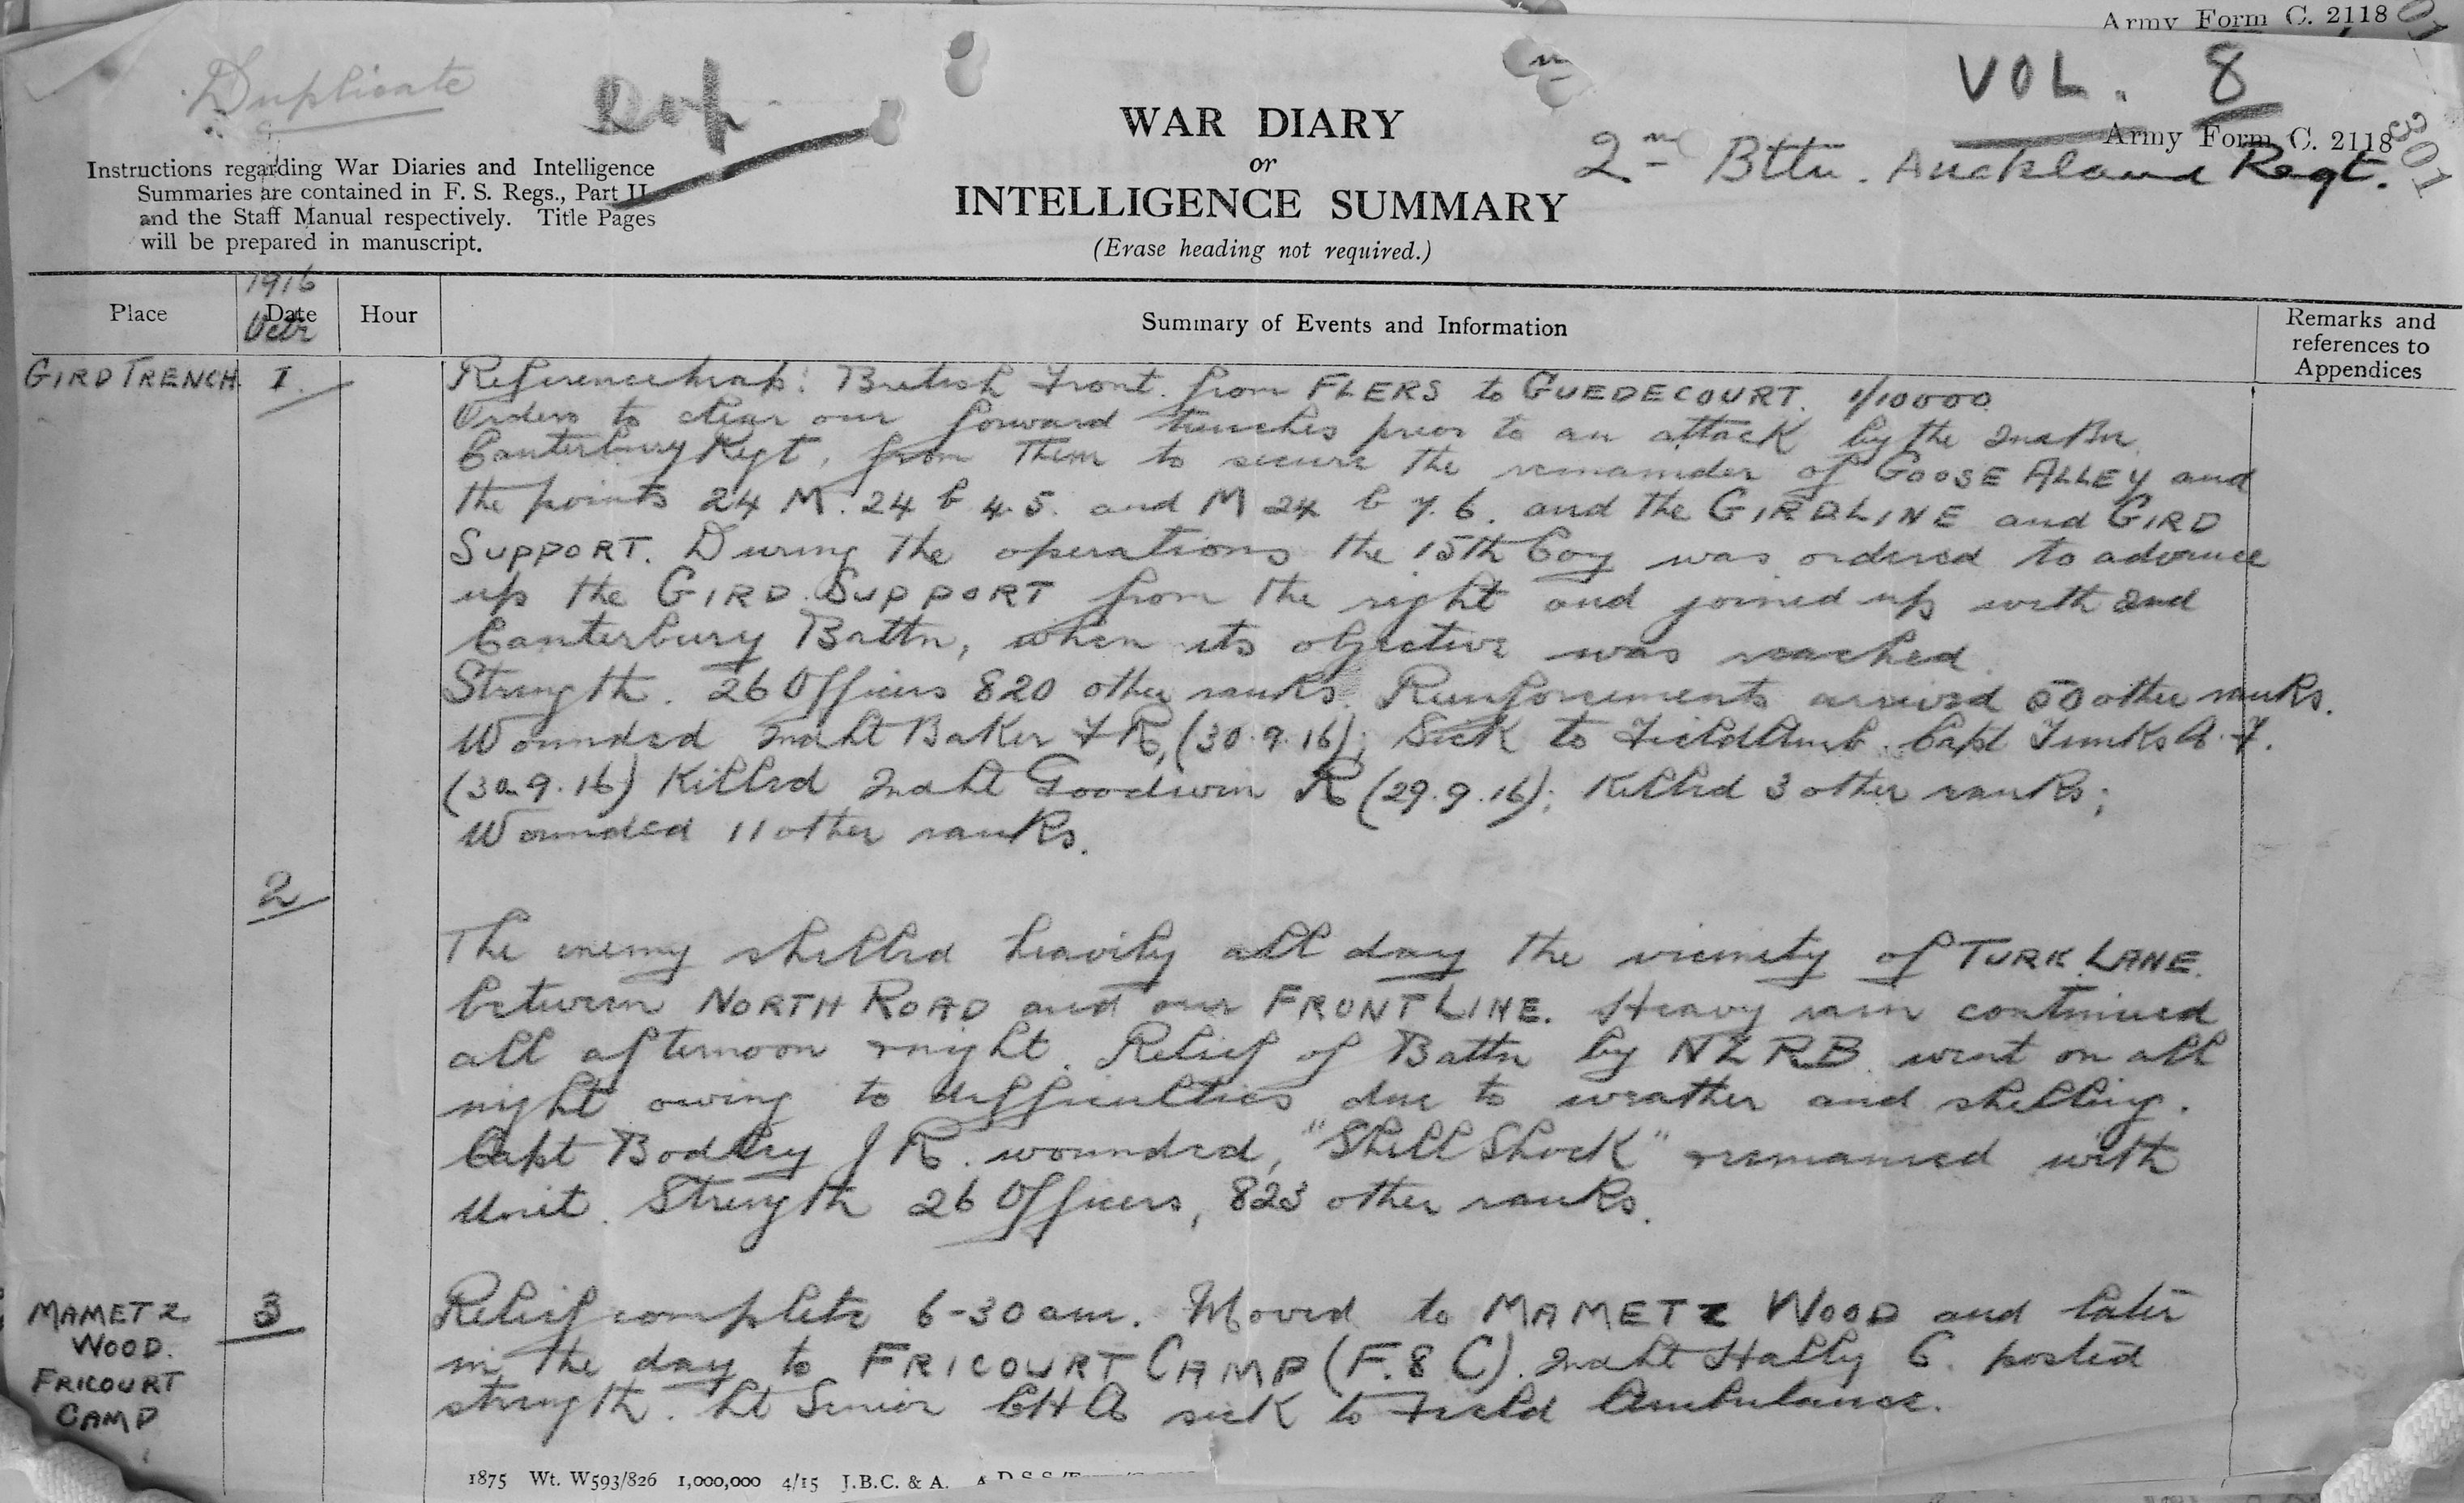 Army Form C. 2118
Duplicate
VOL. 8
WAR DIARY
or
INTELLIGENCE SUMMARY
(Erase heading not required.)
Army Form C. 2118
301
2nd Bttn. Auckland Regt.
Instructions regarding War Diaries and Intelligence
Summaries are contained in F. S. Regs., Part II.
and the Staff Manual respectively. Title Pages
will be prepared in manuscript.
Place
1916
Date
Octr
Hour
Summary of Events and Information
Remarks and
references to
Appendices
GIRD TRENCH. 1.
Reference map: British Front from FLERS to GUEDECOURT. 1/10000
Orders to clear our forward trenches prior to an attack by the 2nd Bn.
Canterbury Regt, from them to secure the remainder of GOOSE ALLEY and
the points 24 M. 24 b 4.5. and M 24 b 7.6. and the GIRD LINE and GIRD
SUPPORT. During the operations the 15th Coy was ordered to advance
up the GIRD SUPPORT from the right and joined up with 2nd
Canterbury Battn, when its objective was reached.
Strength. 26 Officers 820 other ranks. Reinforcements arrived 50 other ranks.
Wounded 2nd Lt Baker F R, (30.9.16); Sick to Field Amb. Capt A. F.
(30.9.16) Killed 2nd Lt Goodwin R (29.9.16); Killed 3 other ranks;
Wounded 11 other ranks.
2
The enemy shelled heavily all day the vicinity of TURK LANE.
between NORTH ROAD and our FRONT LINE. Heavy rain continued
all afternoon & night. Relief of Battn by NZRB. went on all
night owing to difficulties due to weather and shelling.
Capt Bodley J R. wounded, "Shell Shock" remained with
Unit. Strength 26 Officers, 823 other ranks.
MAMETZ
WOOD.
FRICOURT
CAMP
3
Relief complete 6-30 am. Moved to MAMETZ WOOD and later
in the day to FRICOURT CAMP (F.8.C). 2nd Lt Hally C. posted
strength. Lt Senior CHA sick to Field Ambulance.
1875 Wt. W593/826 1,000,000 4/15 J.B.C. & A.